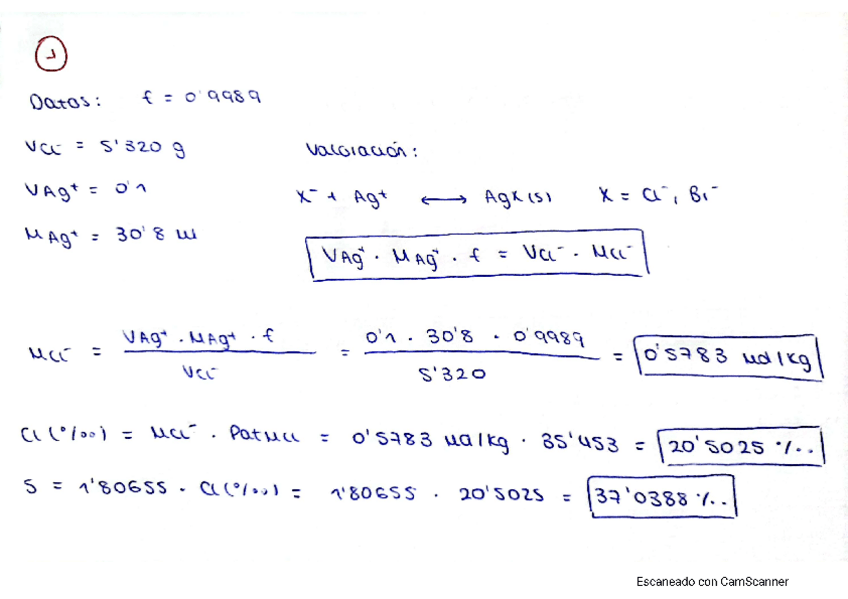 1
Datos: f = 0'9989
VCl⁻ = 5'320 g
Valoración:
VAg⁺ = 0'1
X⁻ + Ag⁺ ⟷ AgX(s) X = Cl⁻, Br⁻
MAg⁺ = 30'8 ml
VAg⁺ · MAg⁺ · f = VCl⁻ · MCl⁻
MCl⁻ = VAg⁺ · MAg⁺ · f / VCl⁻ = 0'1 · 30'8 · 0'9989 / 5'320 = 0'5783 mol/kg
Cl (‰) = MCl⁻ · Pat MCl = 0'5783 mol/kg · 35'453 = 20'5025 ‰
S = 1'80655 · Cl(‰) = 1'80655 · 20'5025 = 37'0388 ‰
Escaneado con CamScanner